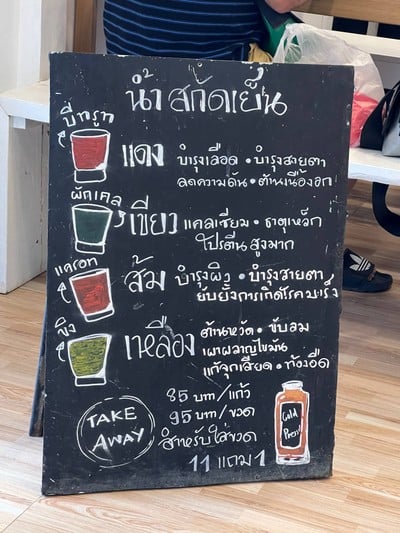 น้ำสกัดเย็น
บีทรูท
แดง
บำรุงเลือด • บำรุงสายตา
ลดความดัน • ต้านเนื้องอก
ผักเคล
เขียว
แคลเซียม • ธาตุเหล็ก
โปรตีนสูงมาก
แครอท
ส้ม
บำรุงผิว • บำรุงสายตา
ยับยั้งการเกิดโรคมะเร็ง
ขิง
เหลือง
ต้านหวัด • ขับลม
เผาผลาญไขมัน
แก้จุกเสียด • ท้องอืด
TAKE
AWAY
85 บาท/แก้ว
95 บาท/ขวด
สำหรับใส่ขวด
11 แถม 1
Cold
Press